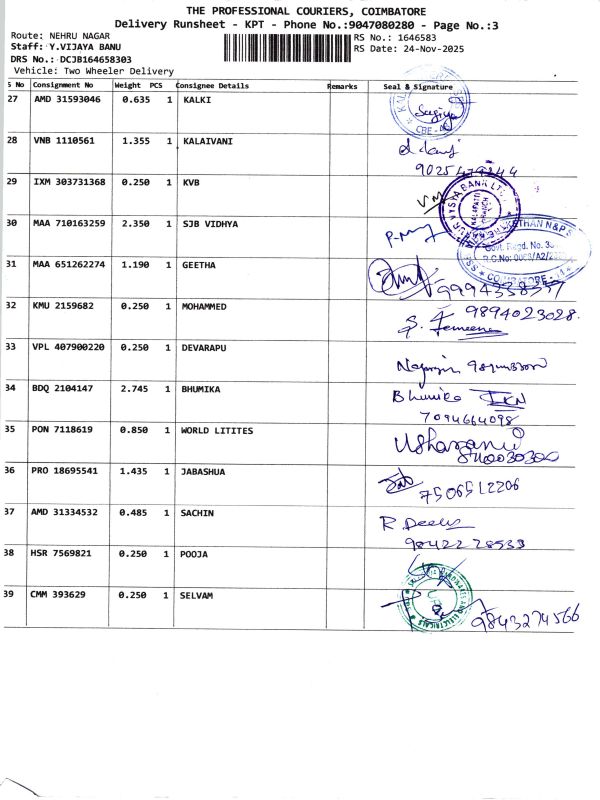 THE PROFESSIONAL COURIERS, COIMBATORE
Delivery Runsheet - KPT - Phone No.:9047080280 - Page No.:3
Route: NEHRU NAGAR RS No.: 1646583
Staff: Y.VIJAYA BANU RS Date: 24-Nov-2025
DRS No.: DCJB164658303
Vehicle: Two Wheeler Delivery
S No Consignment No Weight PCS Consignee Details Remarks Seal & Signature
27 AMD 31593046 0.635 1 KALKI
28 VNB 1110561 1.355 1 KALAIVANI
29 IXM 303731368 0.250 1 KVB
30 MAA 710163259 2.350 1 SJB VIDHYA
31 MAA 651262274 1.190 1 GEETHA
32 KMU 2159682 0.250 1 MOHAMMED
9894023028.
33 VPL 407900220 0.250 1 DEVARAPU
34 BDQ 2104147 2.745 1 BHUMIKA Bhumika
7094664098
35 PON 7118619 0.850 1 WORLD LITITES
36 PRO 18695541 1.435 1 JABASHUA
7506512206
37 AMD 31334532 0.485 1 SACHIN
9842278533
38 HSR 7569821 0.250 1 POOJA
39 CMM 393629 0.250 1 SELVAM 9843274566